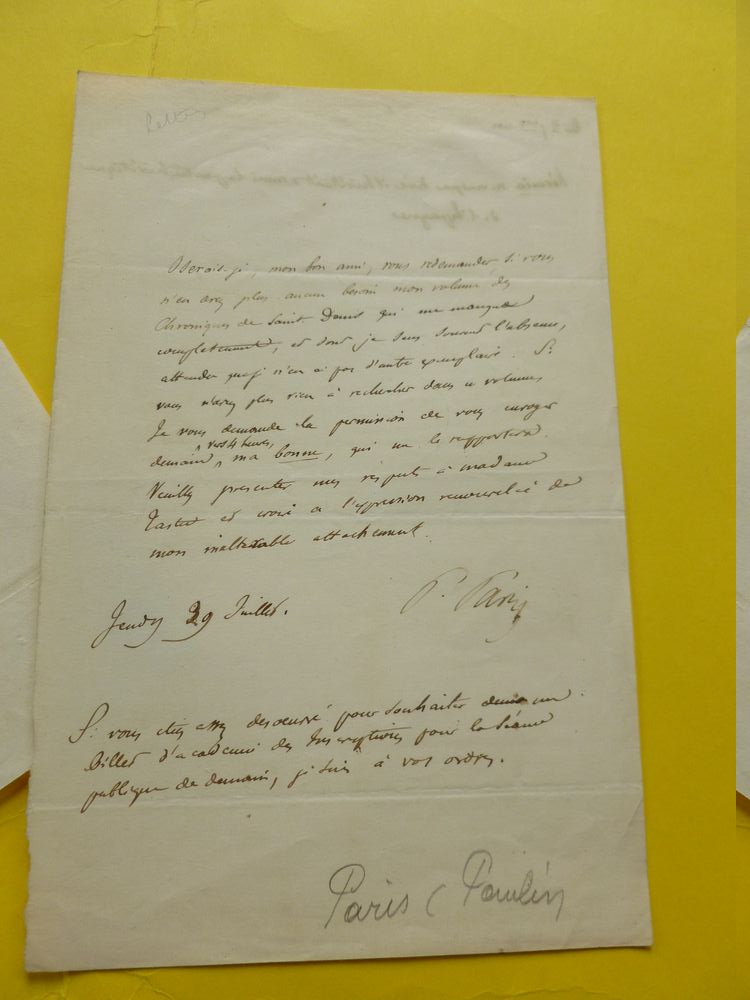 Oserais-je, mon bon ami, vous redemander si vous
n'en avez plus aucun besoin mon volume des
Chroniques de Saint-Denis qui me manque
complettement, et dont je sens souvent l'absence,
attendu que je n'en ai pas d'autre exemplaire. Si
vous n'avez plus rien à rechercher dans ce volume,
Je vous demande la permission de vous envoyer
vers 4 heures,
demain, ma bonne, qui me le rapportera.
Veuillez presenter mes respects à madame
Tastu et croire à l'expression renouvelée de
mon inaltérable attachement.
P. Paris
Jeudy 29 Juillet.
Si vous étiez assez desoeuvré pour souhaiter un
Billet d'academie des Inscriptions pour la Séance
publique de demain, je suis à vos ordres.
Paris (Paulin